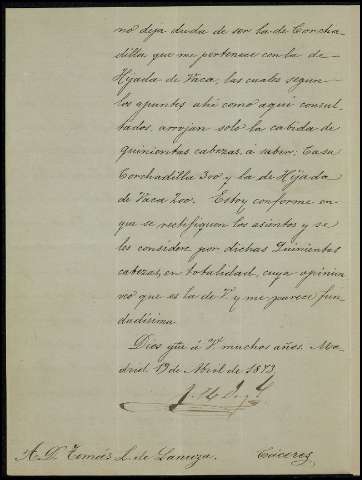 no deja duda de ser la de Corcha-
dilla que me pertenece con la de
Hijada de Vaca, las cuales segun
los apuntes ahi como aqui consul-
tados, arrojan solo la cabida de
quinientas cabezas, á saber: Casa
Corchadilla 300 y la de Hijada
de Vaca 200. Estoy conforme en
que se rectifiquen los asientos y se
les considere por dichas Quinientas
cabezas, en totalidad, cuya opinion
veo que es la de V. y me parece fun-
dadisima.
Dios gue á V. muchos años. Ma-
drid 19 de Abril de 1873.
A. D. Tomás L. de Lanuza. Cáceres